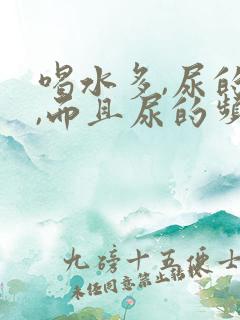 喝水多,尿的
,而且尿的频
九磅十五便士
未经同意禁止转载